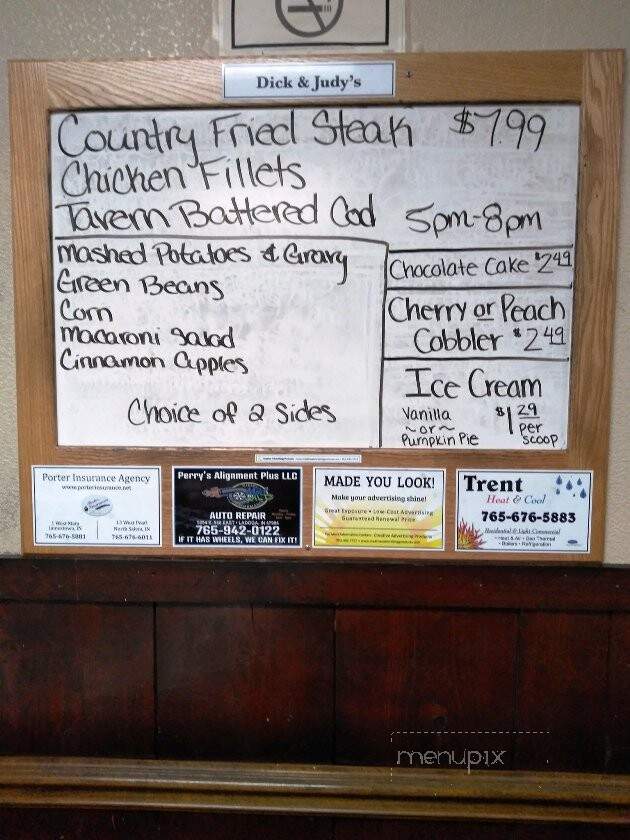 Dick & Judy's
Country Fried Steak $7.99
Chicken Fillets
Tavern Battered Cod 5pm-8pm
Mashed Potatoes & Gravy
Green Beans
Corn
Macaroni Salad
Cinnamon Apples
Choice of 2 Sides
Chocolate Cake $2.49
Cherry or Peach
Cobbler $2.49
Ice Cream
Vanilla
~or~
Pumpkin Pie
$1.29
per
scoop
Porter Insurance Agency
www.porterinsurance.net
1 West Main
Jamestown, IN
765-676-5881
13 West Pearl
North Salem, IN
765-676-6011
Perry's Alignment Plus LLC
AUTO REPAIR
LADOGA, IN 47954
765-942-0122
IF IT HAS WHEELS, WE CAN FIX IT!
MADE YOU LOOK!
Make your advertising shine!
Great Exposure • Low-Cost Advertising
Guaranteed Renewal Price
Trent
Heat & Cool
765-676-5883
Residential & Light Commercial
• Heat & Air • Geo Thermal
• Boilers • Refrigeration
menupix